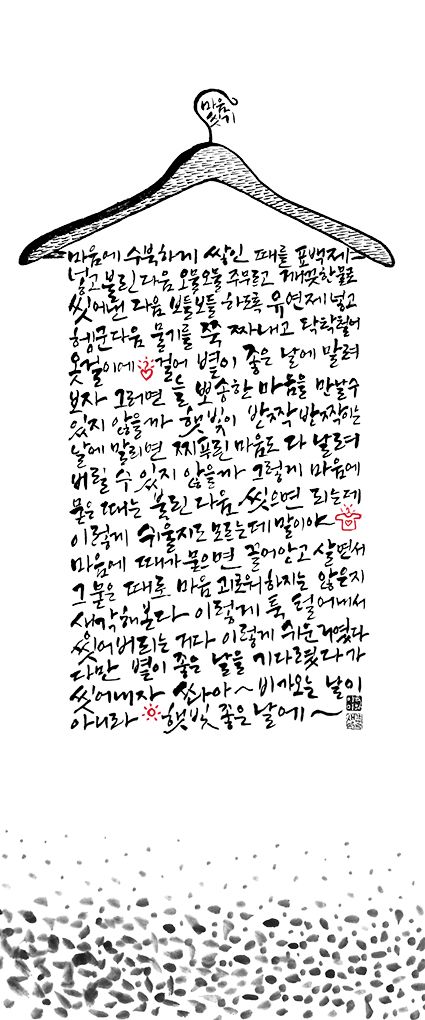 마음
씻기
마음에 수북하게 쌓인 때를 표백제
넣고 불린 다음 오물오물 주무르고 깨끗한 물로
씻어낸 다음 보들보들 하도록 유연제 넣고
헹군다음 물기를 쭉 짜내고 탁탁 털어
옷걸이에 걸어 볕이 좋은 날에 말려
보자 그러면 늘 뽀송한 마음을 만날 수
있지 않을까 햇빛이 반짝반짝이는
날에 말리면 찌푸린 마음도 다 날려
버릴 수 있지 않을까 그렇게 마음에
묻은 때는 불린 다음 씻으면 되는데
이렇게 쉬울지도 모르는데 말이야
마음에 때가 묻으면 끌어안고 살면서
그 붙은 때로 마음 괴로워하지는 않은지
생각해본다 이렇게 툭 털어내서
씻어버리는 거다 이렇게 쉬운거였다
다만 볕이 좋은 날을 기다렸다가
씻어내자 쏴아~ 비가오는 날이
아니라 햇빛 좋은 날에~